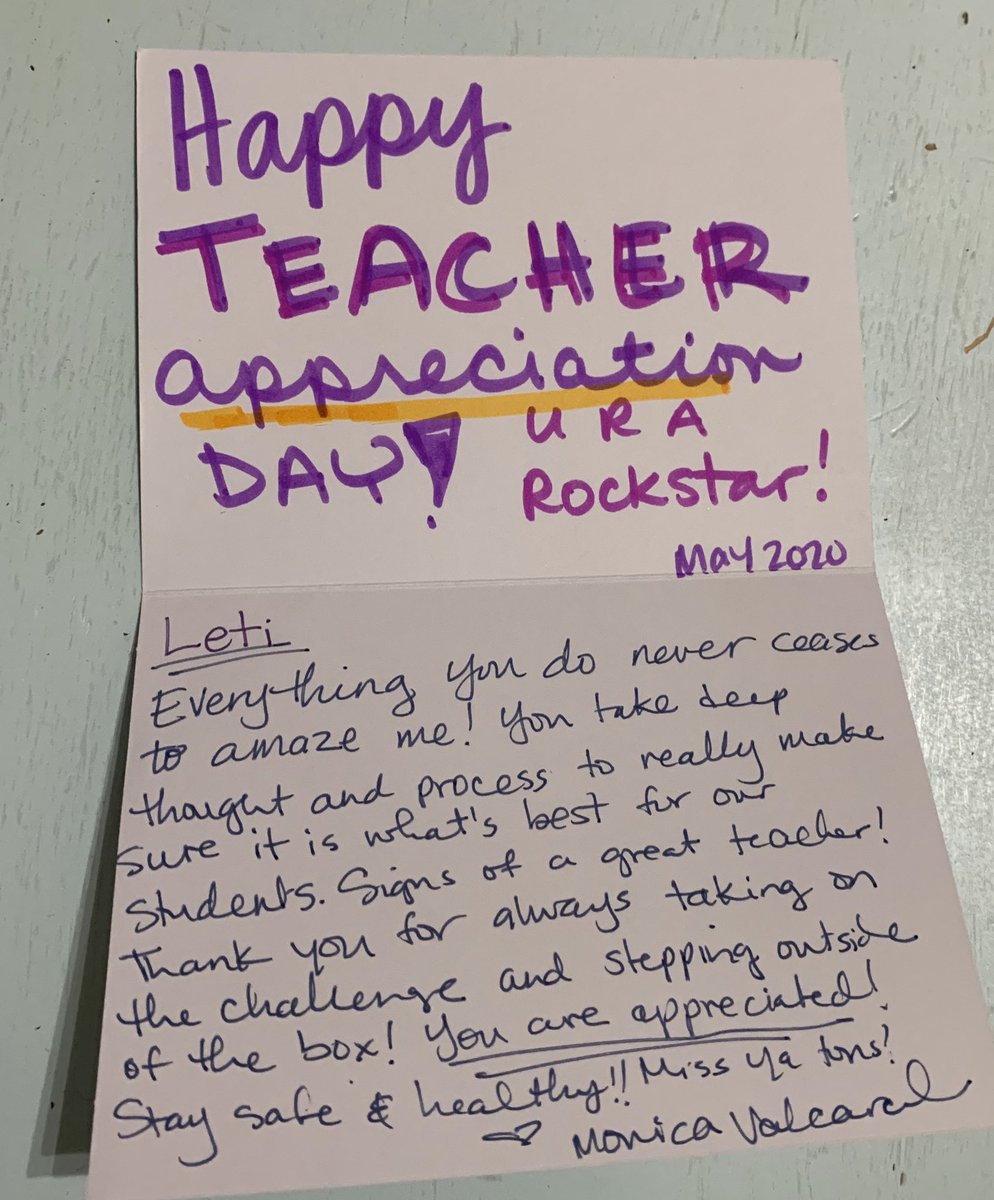 Happy
TEACHER
appreciation
DAY!
U R A
Rockstar!
May 2020
Leti
Everything you do never ceases
to amaze me! You take deep
thought and process to really make
sure it is what's best for our
students. Signs of a great teacher!
Thank you for always taking on
the challenge and stepping outside
of the box! You are appreciated!
Stay safe & healthy!! Miss ya tons!
♡ Monica Valcarcel